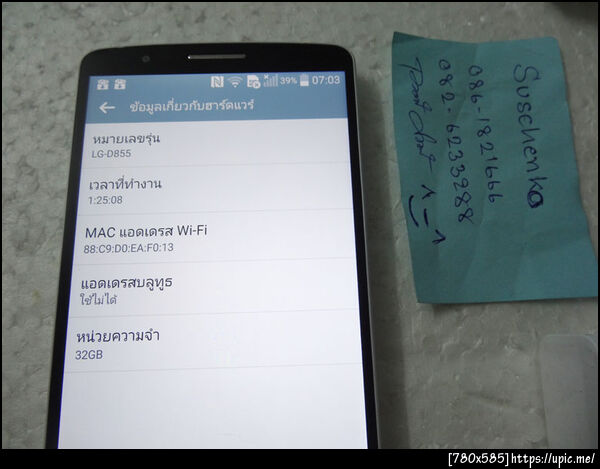 39% 07:03
ข้อมูลเกี่ยวกับฮาร์ดแวร์
หมายเลขรุ่น
LG-D855
เวลาที่ทำงาน
1:25:08
MAC แอดเดรส Wi-Fi
88:C9:D0:EA:F0:13
แอดเดรสบลูทูธ
ใช้ไม่ได้
หน่วยความจำ
32GB
Suschenko
086-1821666
082-6233288
[780x585]https://upic.me/